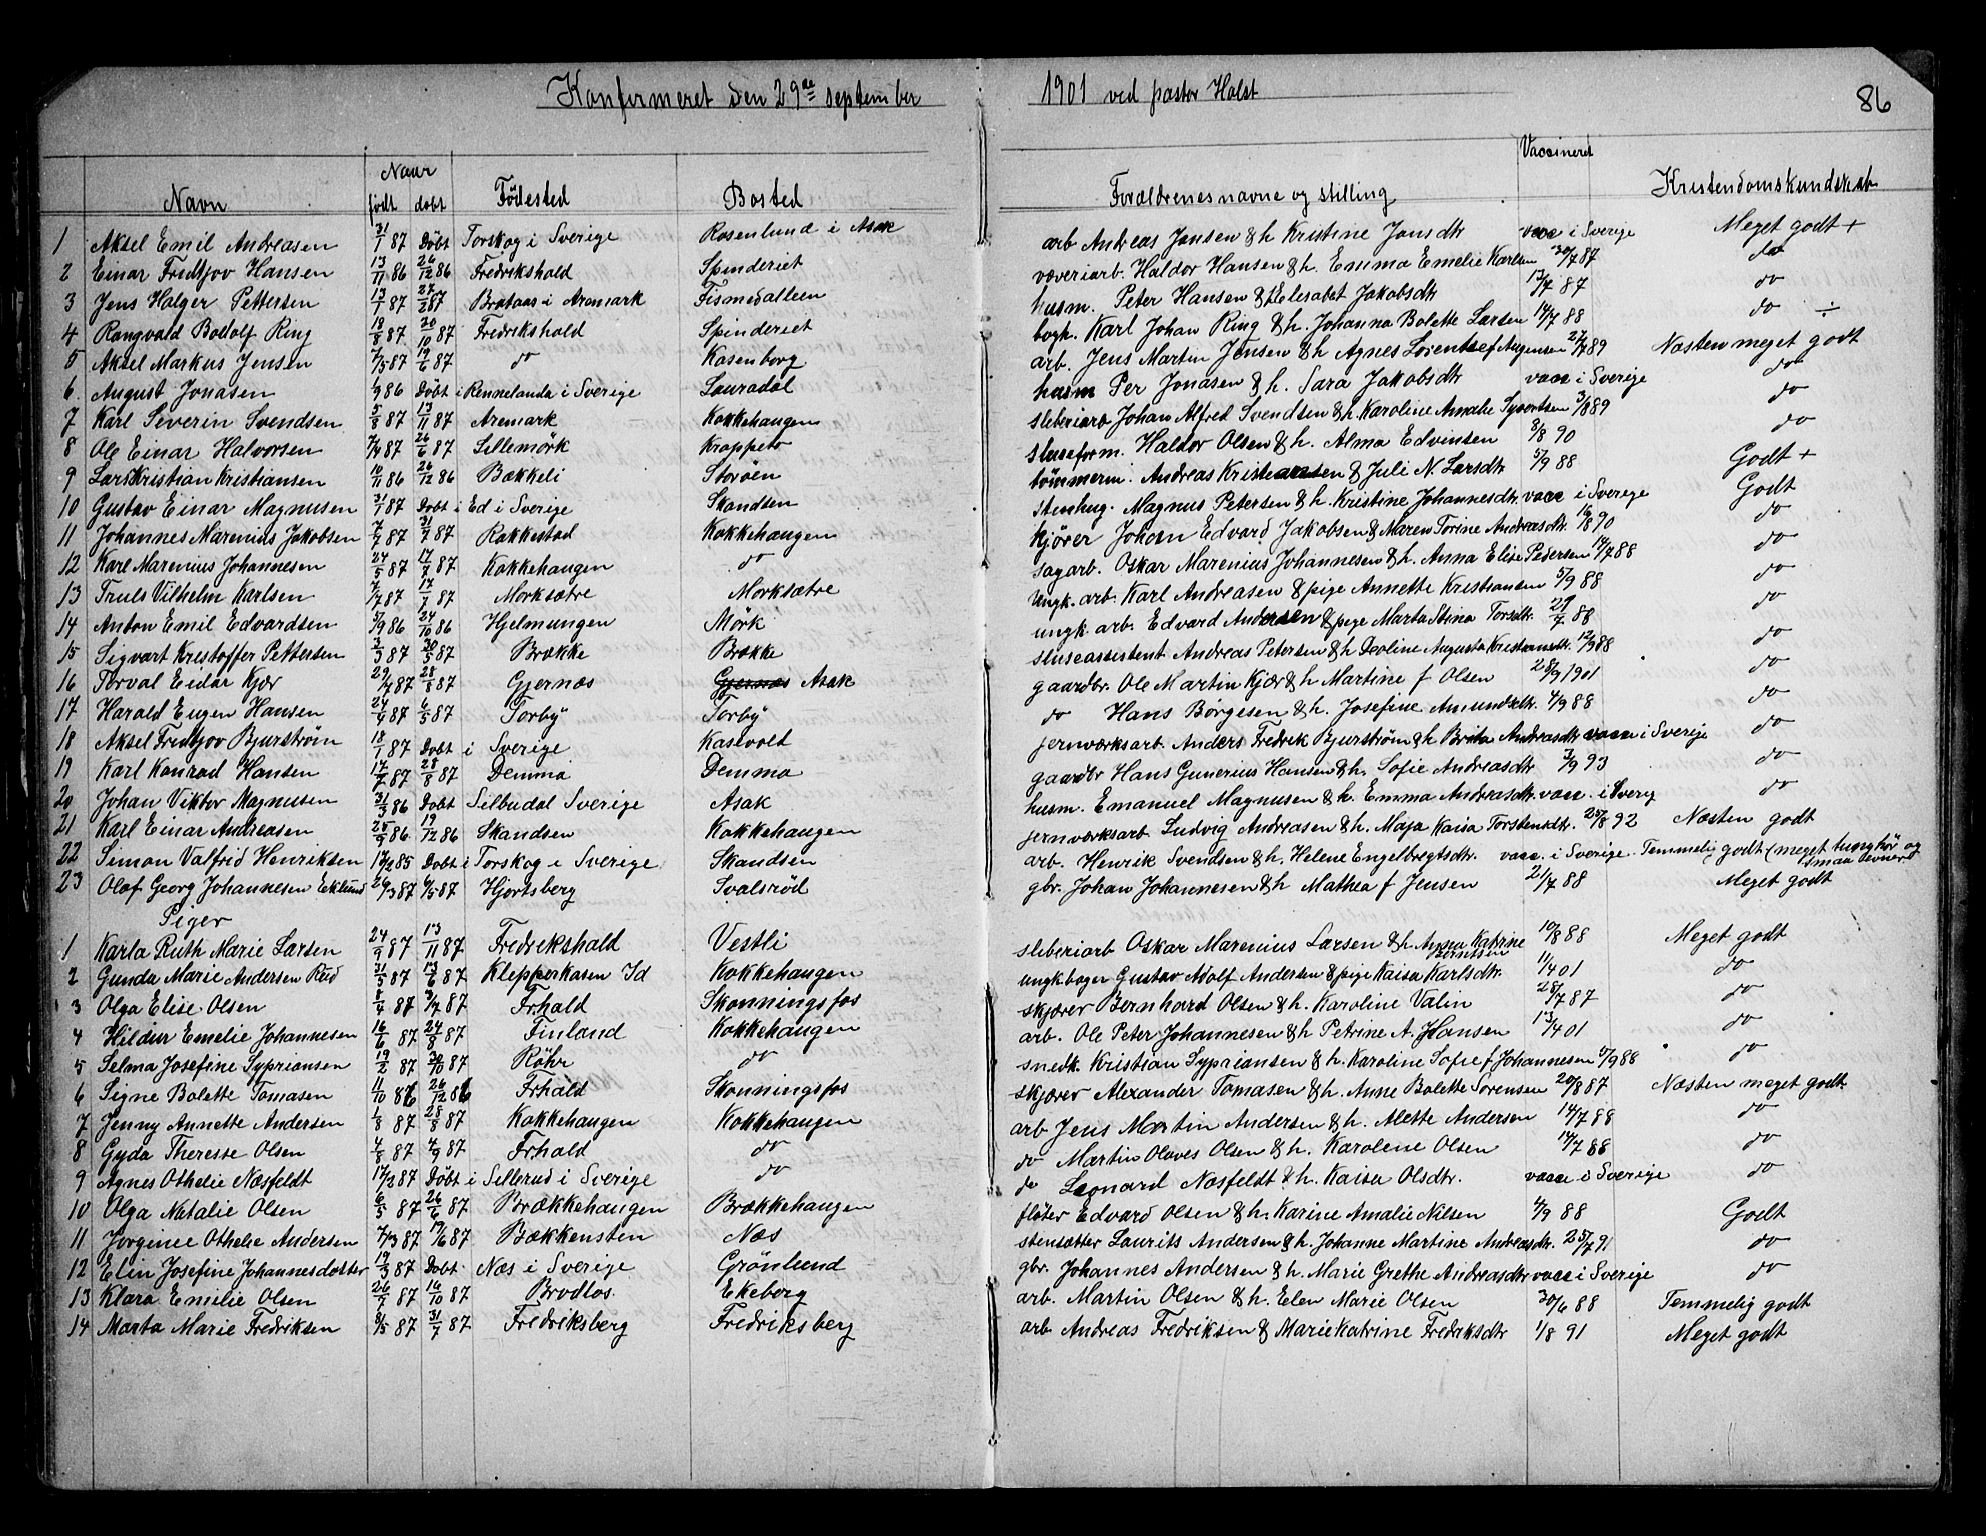 Konfirmeret den 29de september 1901 ved pastor Holst
86
Navn Naar født døbt Födested Bosted Forældrenes navne og stilling Vaccineret Kristendomskundskab
1 Aksel Emil Andreasen 31/1 87 Döbt i Torskog i Sverige Rosenlund i Asak arb Andreas Jansen & h Kristine Jonsdtr vacc i Sverige Meget godt +
2 Einar Fridtjov Hansen 13/11 86 26/12 86 Fredrikshald Spinderiet væveriarb. Haldor Hansen & h. Emma Emelie Karlsen 30/7 87 do
3 Jens Holger Pettersen 13/1 87 27/2 87 Brataas i Aremark Tismedalleen husm. Peter Hansen & Elisabet Jakobsdtr 13/7 87 do
4 Rangvald Bodolf Ring 19/8 87 20/10 87 Fredrikshald Spinderiet bogh. Karl Johan Ring & h. Johanna Bolette Larsen 14/7 88 do ÷
5 Aksel Markus Jensen 7/5 87 19/6 87 do Kasenborg arb. Jens Martin Jensen & h Agnes Lorentse f Augensen 27/7 89 Næsten meget godt
6 August Jonasen 4/9 86 Döbt i Rennelanda i Sverige Lauradal husm Per Jonasen & h. Sara Jakobsdtr vacc i Sverige do
7 Karl Severin Svendsen 5/8 87 13/11 87 Aremark Kokkehaugen sleberiarb Johan Alfred Svendsen & h. Karoline Amalie Syvertsen 3/8 89 do
8 Ole Einar Halvorsen 7/4 87 26/6 87 Lillemörk Krappeto sluseform. Haldor Olsen & h. Alma Edvinsen 8/8 90 do
9 Lars Kristian Kristiansen 10/11 86 26/12 86 Bækkeli Storöen tömmerm. Andreas Kristiansen & Juli N. Larsdtr 5/9 88 Godt +
10 Gustav Einar Magnusen 31/1 87 Döbt i Ed i Sverige Skandsen stenhug. Magnus Petersen & h. Kristine Johannesdtr. vacc i Sverige Godt
11 Johannes Marenius Jakobsen 7/4 87 31/7 87 Rakkestad Kokkehaugen kjörer Johan Edvard Jakobsen & Maren Torine Andreasdtr. 16/8 90 do
12 Karl Marenius Johannesen 24/5 87 17/7 87 Kokkehaugen do sagarb. Oskar Marenius Johannesen & h. Anna Elise Pedersen 14/7 88 do
13 Truls Vilhelm Karlsen 7/7 87 17/7 87 Morksætre Morksætre Ungk. arb. Karl Andreasen & pige Annette Kristiansen 5/9 88 do
14 Anton Emil Edvardsen 5/9 86 24/10 86 Hjelmungen Mörk ungk. arb. Edvard Andersen & pige Marta Stina Torsdtr. 29/7 88 do
15 Sigvart Kristoffer Pettersen 3/3 87 30/5 87 Brække Brække sluseassistent Andreas Petersen & h Dooline Augusta Kristiansdtr. 12/9 88 do
16 Torval Eidar Kjær 29/7 87 28/8 87 Gjernæs Gjernæs Asak gaardbr. Ole Martin Kjær & h Martine f Olsen 28/9 1901 do
17 Harald Eugen Hansen 24/4 87 6/5 87 Torby Torby do Hans Börgesen & h. Josefine Amundsdtr. 4/9 88 do
18 Aksel Fridtjov Bjurström 18/1 87 Döbt i Sverige Kasevold jernværksarb. Anders Fredrik Bjurström & h Brita Andreasdtr vacc i Sverige do
19 Karl Konrad Hansen 17/7 87 28/8 87 Demma Demma gaardbr Hans Gunerius Hansen & h. Sofie Andreasdtr 3/9 93 do
20 Johan Viktor Magnusen 31/3 86 Döbt Silbudal Sverige Asak husm. Emanuel Magnusen & h. Emma Andreasdtr. vacc. i Sverig do
21 Karl Einar Andreasen 25/9 86 19/12 86 Skandsen Kokkehaugen jernværksarb Ludvig Andreasen & h. Maja Kaisa Torstensdtr. 25/8 92 Næsten godt
22 Simon Valfrid Henriksen 14/2 85 Döbt i Torskog i Sverige Skandsen arb. Henrik Svendsen & h. Helene Engelbregtsdtr. vacc. i Sverige. Temmelig godt (meget tunghör og smaa evner)
23 Olaf Georg Johannesen Eklund 26/3 87 6/5 87 Hjortsberg Svalsröd gbr. Johan Johannesen & h Mathea f Jensen 21/7 88 Meget godt
Piger
1 Karla Ruth Marie Larsen 24/9 87 13/11 87 Fredrikshald Vestli sleberiarb Oskar Marenius Larsen & h. Anna Katrine Berntsen 10/8 88 Meget godt
2 Gunda Marie Andersen Rud 21/5 87 13/6 87 Klepperkasen Id Kokkehaugen ungk bager Gustav Adolf Andersen & pige Kaisa Karlsdtr. 11/4 01 do
3 Olga Elise Olsen 8/4 87 3/7 87 Frhald Skonningsfos skjærer Bernhard Olsen & h. Karoline Valin 25/7 87 do
4 Hildur Emelie Johannesen 16/6 87 24/8 87 Finland Kokkehaugen arb. Ole Peter Johannesen & h Petrine A. Hansen 13/4 01 do
5 Selma Josefine Syprianesen 19/2 87 30/10 87 Röhr do snedk. Kristian Sypriansen & h. Karoline Sofie f Johannesen 5/9 88 do
6 Signe Bolette Tomasen 11/10 86 26/12 86 Frhald Skonningsfos skjærer Alexander Tomasen & h. Anne Bolette Sörensen 20/8 87 Næsten meget godt
7 Jenny Annette Andersen 1/8 87 28/8 87 Kokkehaugen Kokkehaugen arb Jens Martin Andersen & h. Alette Andersen 14/7 88 do
8 Gyda Therese Olsen 4/8 87 4/9 87 Frhald do do Martin Olaves Olsen & h. Karolene Olsen 14/7 88 do
9 Agnes Othelie Næsfeldt 17/3 87 Döbt i Sillerud i Sverige do do Leonard Næsfeldt & h. Kaisa Olsdtr. vacc i Sverige do
10 Olga Natalie Olsen 6/5 87 26/6 87 Brækkehaugen Brækkehaugen flöter Edvard Olsen & h. Karine Amalie Nilsen 4/9 88 Godt
11 Jorginee Othelie Andersen 7/3 87 19/6 87 Bækkensten Næs stensætter Laurits Andersen & h. Johanne Martine Andreasdtr. 25/7 91 do
12 Elin Josefine Johannesdotter 19/3 87 Döbt Næs i Sverige Grönlund gbr. Johannes Andersen & h. Marie Grethe Andreasdtr vacc i Sverige do
13 Klara Emilie Olsen 26/7 87 16/10 87 Brödlös Ekeberg arb. Martin Olsen & h. Elen Marie Olsen 30/6 88 Temmelig godt
14 Marta Marie Fredriksen 8/5 87 31/7 87 Fredriksberg Fredriksberg arb Andreas Fredriksen & Marie Katrine Fredriksdtr 1/8 91 Meget godt